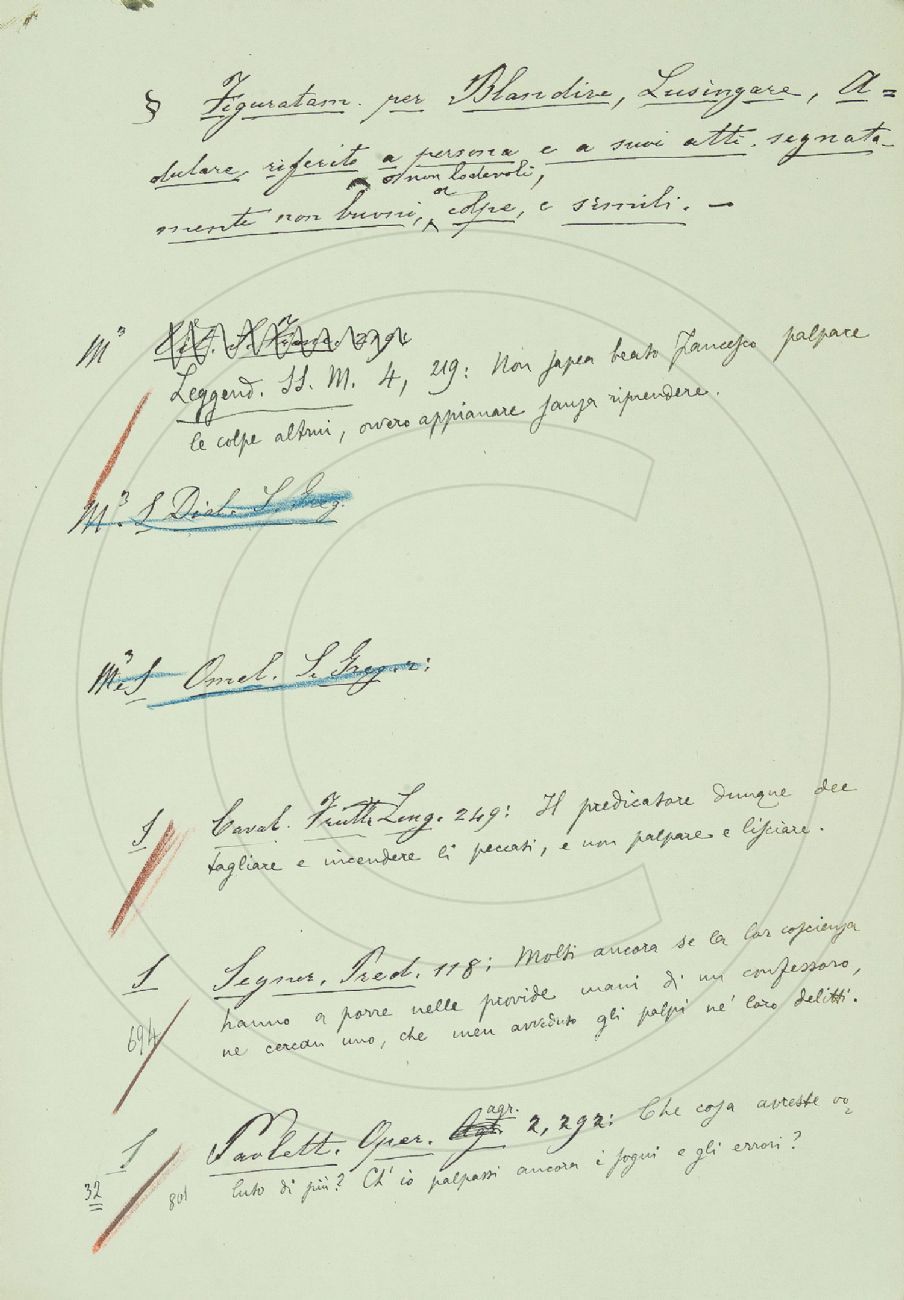 § Figuratam. per Blandire, Lusingare, A=
dulare, riferito a persona e a suoi atti segnata-
o non lodevoli,
mente non buoni, a colpe, e simili. —
M³
Leggend. SS. M. 4, 219: Non sapea beato Francesco palpare
le colpe altrui, ovvero appianare sanza riprendere.
M³. S Dial. S. Greg.
M³ e S Omel. S. Gregor:
S Caval. Frutt. Ling. 249: Il predicatore dunque dee
tagliare e incendere li peccati, e non palpare e lisciare.
S Segner. Pred. 118: Molti ancora se la lor coscienza
hanno a porre nelle provide mani di un confessoro,
694 ne cercan uno, che men avveduto gli palpi ne' loro delitti.
agr.
S Paolett. Oper. 2, 292: Che cosa avreste vo-
32 801 luto di più? Ch'io palpassi ancora i sogni e gli errori?